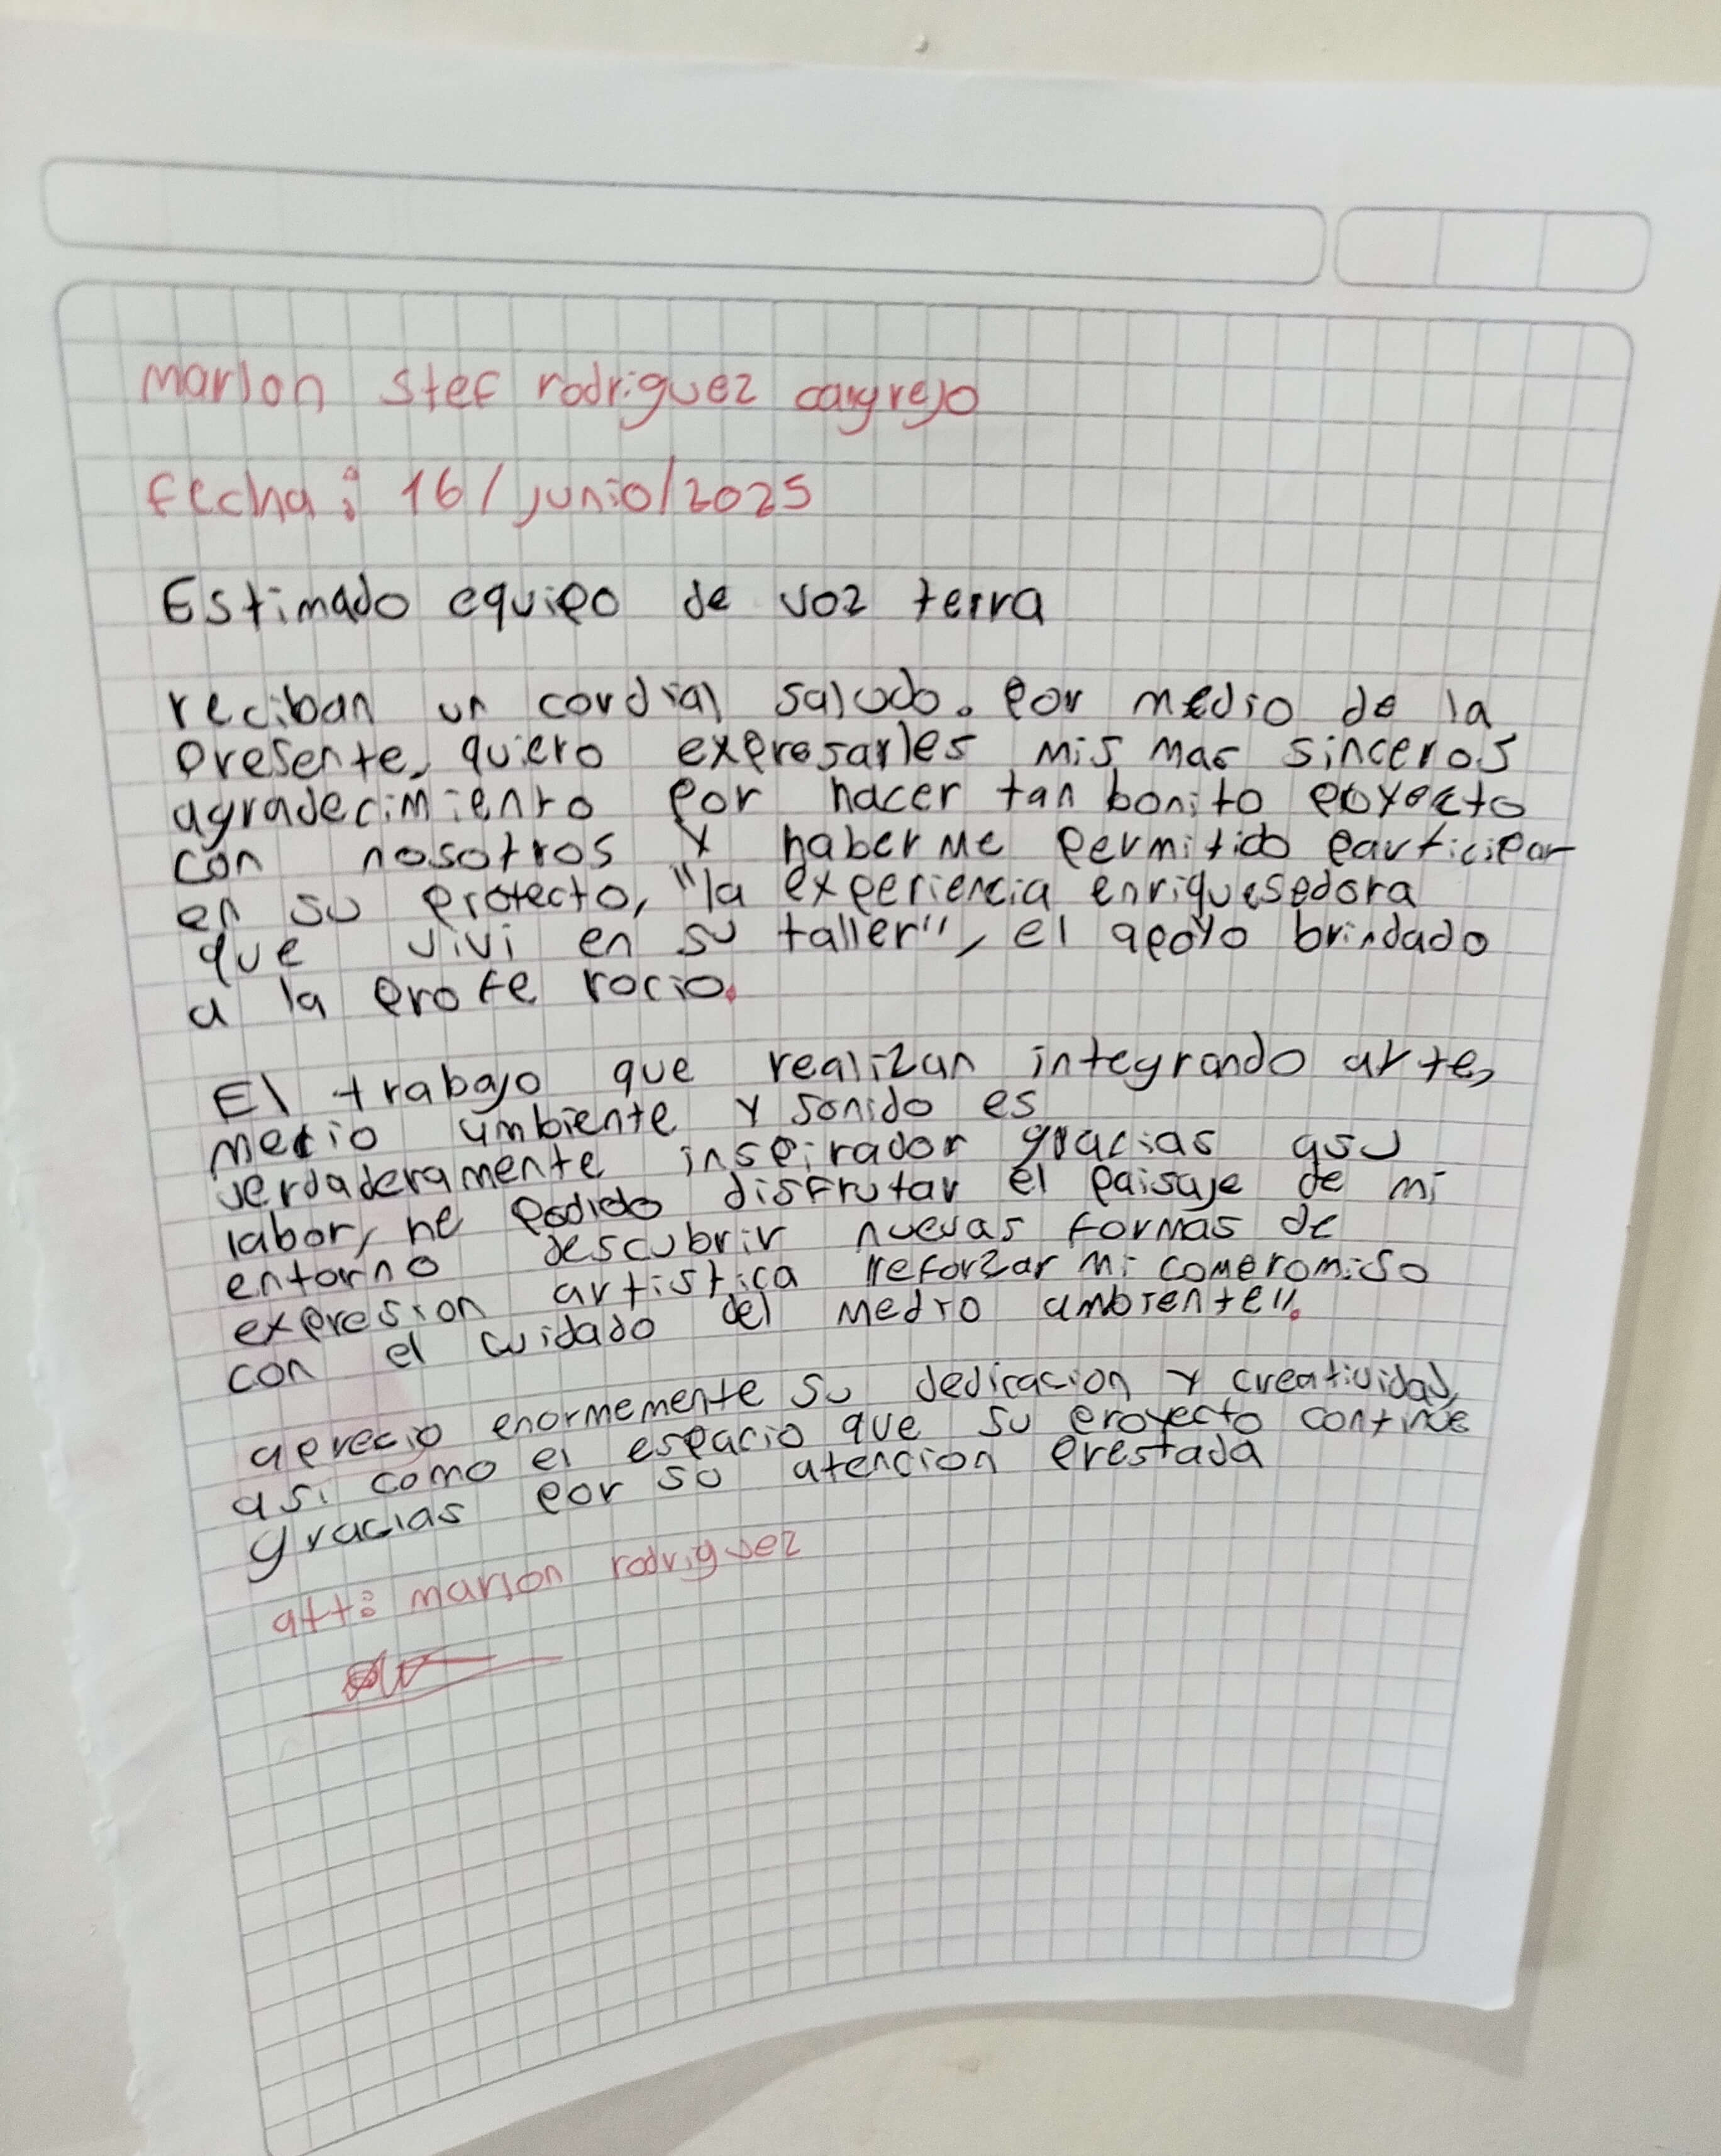 marlon stef rodriguez cangrejo
fecha: 16/junio/2025
Estimado equipo de voz terra
reciban un cordial saludo. por medio de la
presente, quiero expresarles mis mas sinceros
agradecimiento por hacer tan bonito proyecto
con nosotros y haber me permitido participar
en su protecto, "la experiencia enriquesedora
que vivi en su taller", el apoyo brindado
a la profe rocio.
El trabajo que realizan integrando arte,
medio ambiente y sonido es
verdaderamente inspirador gracias a su
labor, he podido disfrutar el paisaje de mi
entorno descubrir nuevas formas de
expresion artistica reforzar mi compromiso
con el cuidado del medio ambiente".
aprecio enormemente su dedicacion y creatividad,
asi como el espacio que su proyecto continue
gracias por su atencion prestada
att: marlon rodriguez